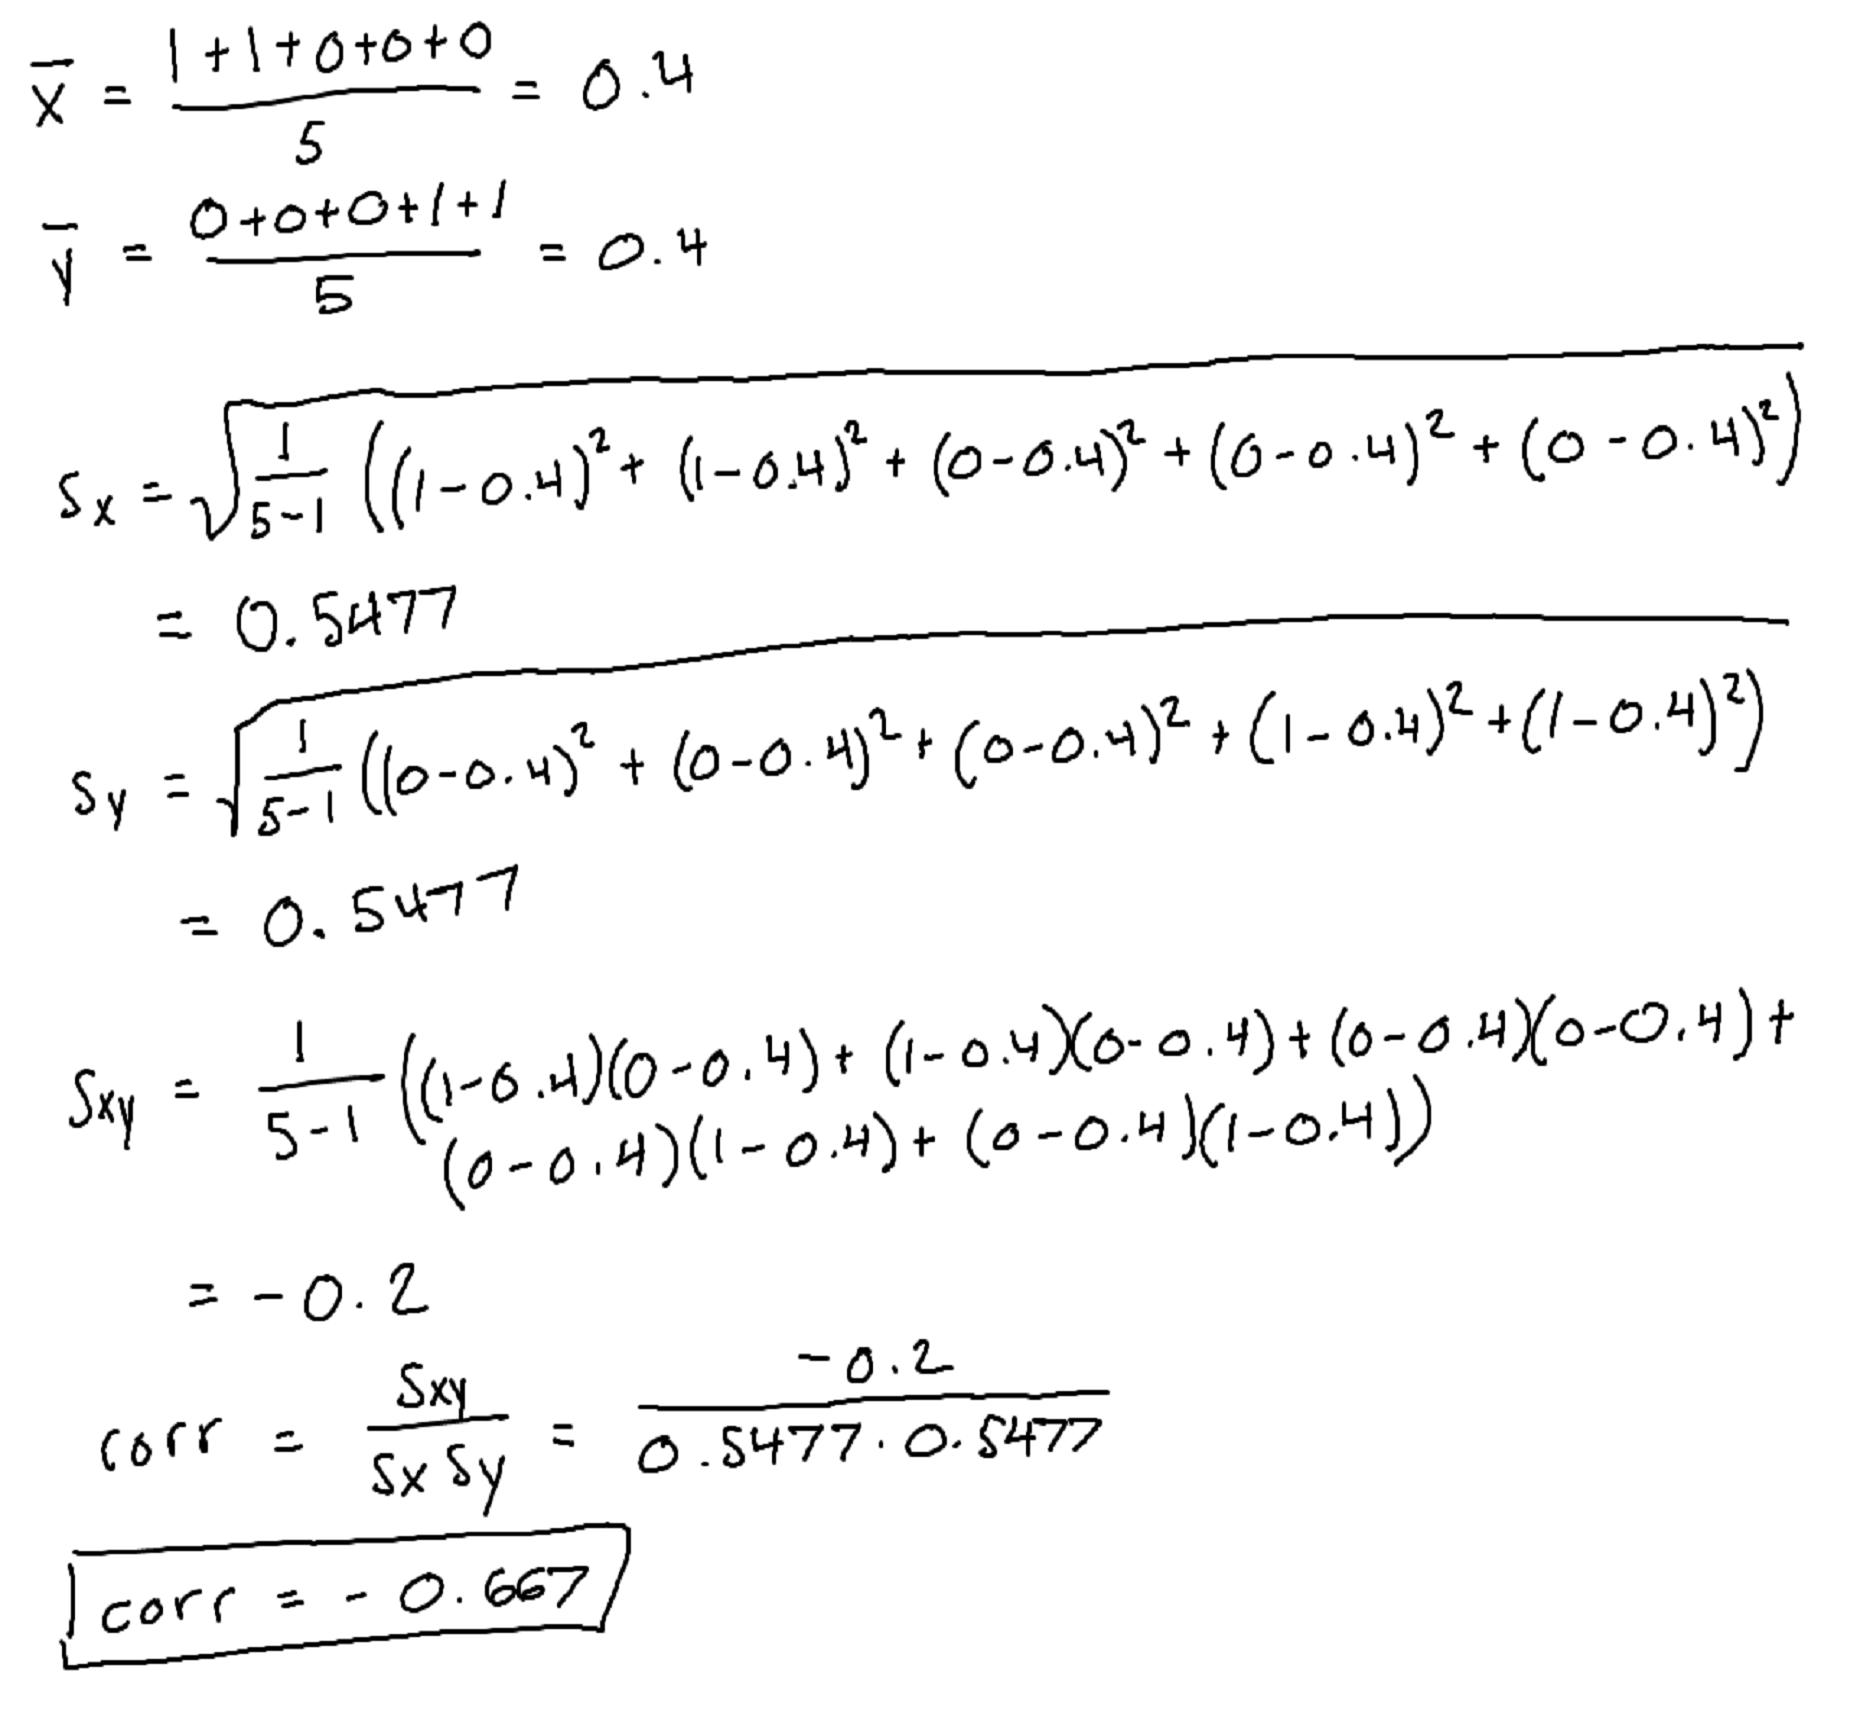 x̄ = (1+1+0+0+0)/5 = 0.4
ȳ = (0+0+0+1+1)/5 = 0.4
Sx = √(1/(5-1) ((1-0.4)² + (1-0.4)² + (0-0.4)² + (0-0.4)² + (0-0.4)²))
= 0.5477
Sy = √(1/(5-1) ((0-0.4)² + (0-0.4)² + (0-0.4)² + (1-0.4)² + (1-0.4)²))
= 0.5477
Sxy = 1/(5-1) ((1-0.4)(0-0.4) + (1-0.4)(0-0.4) + (0-0.4)(0-0.4) +
(0-0.4)(1-0.4) + (0-0.4)(1-0.4))
= -0.2
corr = Sxy/(Sx Sy) = -0.2/(0.5477 · 0.5477)
corr = -0.667